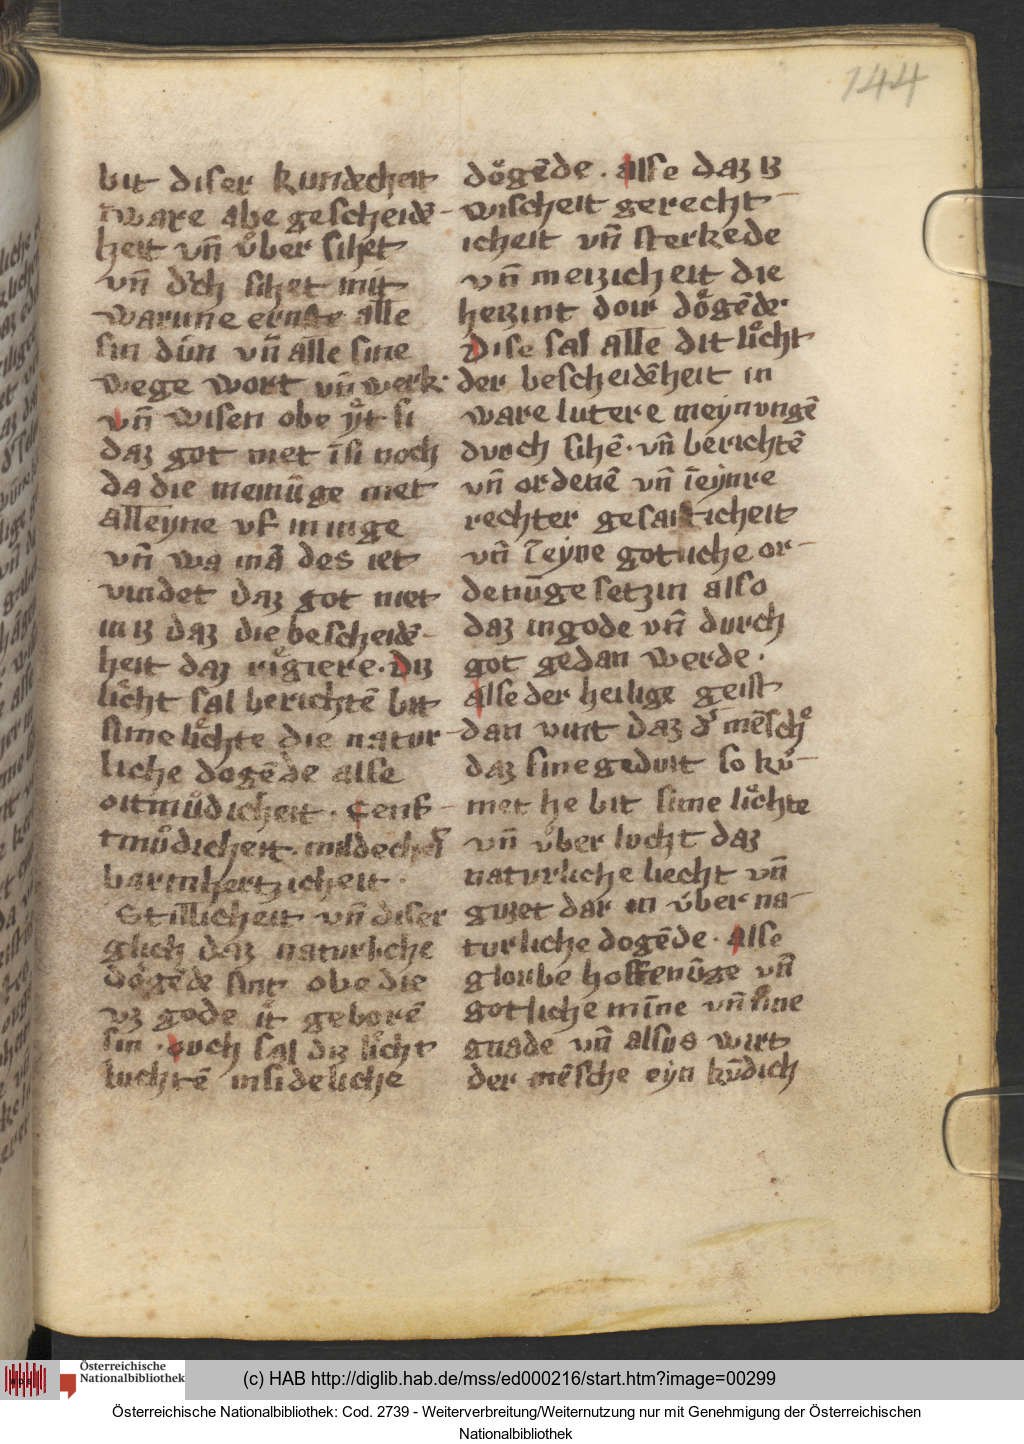 144
bit diser kundecheit
tware abe gescheidē-
heit vn̄ uͦber sihet
vn̄ dͦch sihet mit
warune ernste alle
sin duͤn vn̄ alle sine
wege wort vn̄ werk·
vn̄ wisen obe yͦt si
daz got niet īsi noch
da die meinūge niet
alleyne vf in inge
vn̄ wa mā des iet
vindet daz got niet
in iz daz die bescheidē-
heit daz riͦgiere· Diz
liͦcht sal berichtē bit
sime liͦchte die natur
liche dogēde alse
oitmuͦdicheit· senf-
tmuͦdicheit· mildecheit
barmhertzicheit·
Stillicheit vn̄ diser
glich daz naturliche
doͤgēde sint obe die
vz gode iͦt geborē
sin· ouch sal diz liͦcht
luchtē insideliche
doͤgēde· alse daz iz
wischeit gerecht-
icheit vn̄ sterkede
vn̄ meizicheit die
heizint doir doͤgēde·
Dise sal alle dit liͦcht
der bescheidēheit in
ware lutere meynungē
durch sihē· vn̄ berichtē
vn̄ ordenē vn̄ īeynre
rechter gesaticheit
vn̄ īeyne gotliche or-
denūge setzin also
daz ingode vn̄ durch
got gedan werde·
alse der heilige geist
dan vint daz dͬ mēschͦ
daz sine geduit so kuͦ-
met he bit sime liͦchte
vn̄ uͦber lucht daz
naturliche liecht vn̄
guzet dar in uͦber na-
turliche dogēde· alse
gloube hoffenūge vn̄
gotliche mīne vn̄ sine
gnade vn̄ alsus wirt
der mēsche eyn kūdich
(c) HAB http://diglib.hab.de/mss/ed000216/start.htm?image=00299
Österreichische
Nationalbibliothek
Österreichische Nationalbibliothek: Cod. 2739 - Weiterverbreitung/Weiternutzung nur mit Genehmigung der Österreichischen
Nationalbibliothek